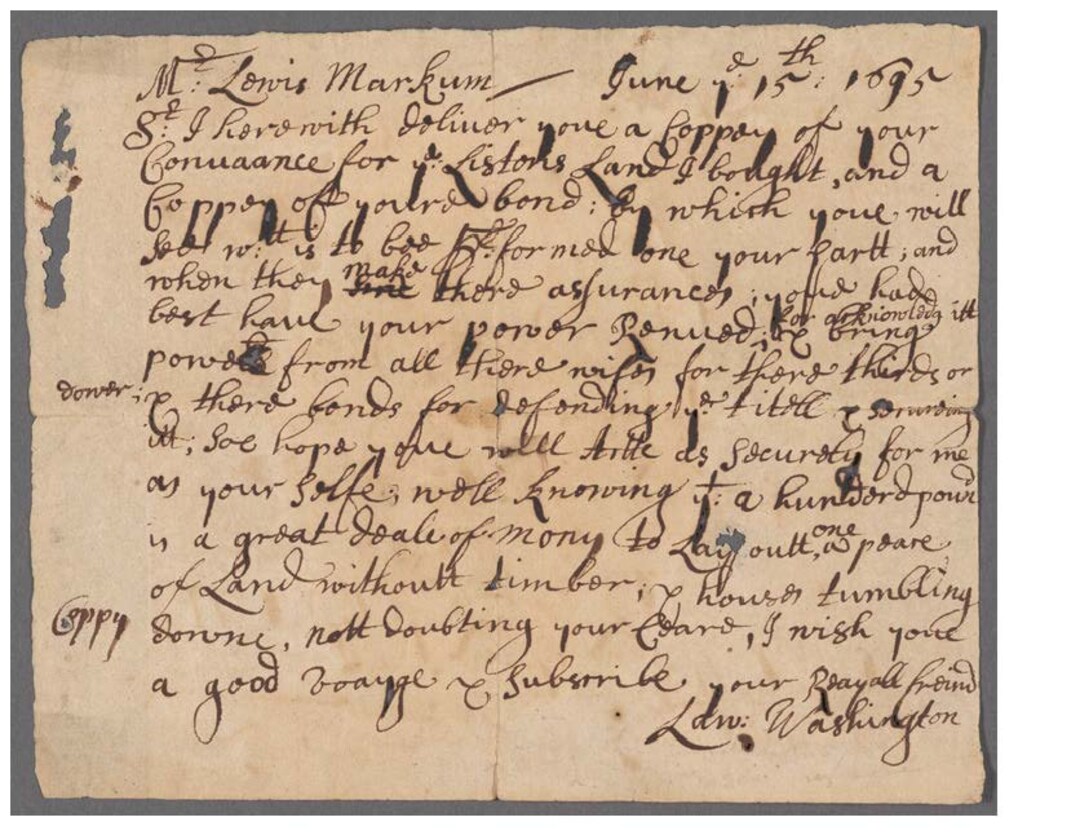 Mr: Lewis Markum — June ye 15th: 1695
Sr: I herewith deliver youe a Coppey of your
Convaance for ye: Listons Land I bought, and a
Coppey of youre bond: by which youe will
see wtt: is to bee Pr:formed one your partt; and
when they make there assurances; youe had
best have your power Renued; for acknowledg itt & bring
power from all there wifes for there thirds or
dower; & there bonds for defending ye: titell & secureing
itt; soe hope youe will Acte as securety for me
as your selfe, well knowing yt: a hunderd poun
is a great deale of mony to Lay outt, one a peace
of Land withoutt timber; & houses tumbling
Coppy downe, nott doubting your Ceare, I wish youe
a good voayge & subscribe your Reayall freind
Law: Washington